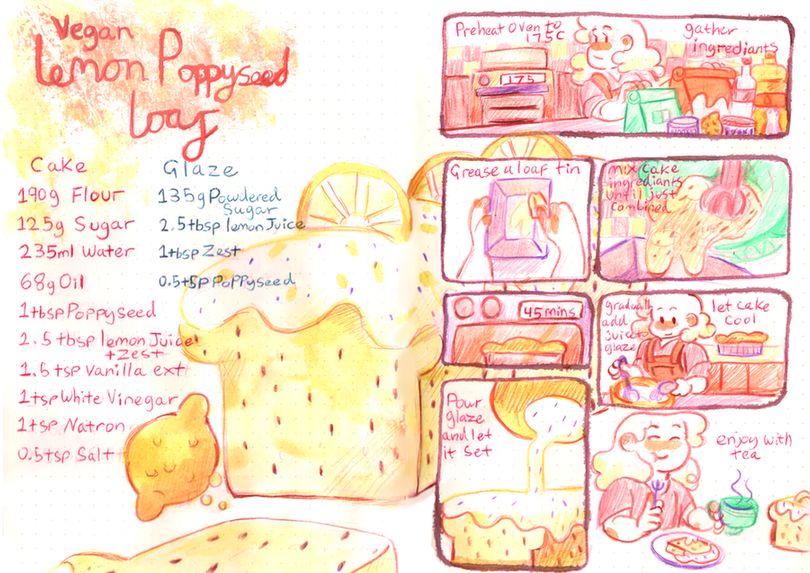 Vegan
Lemon Poppyseed
Loaf
Cake
190g Flour
125g Sugar
235ml Water
68g Oil
1tbsp Poppyseed
2.5tbsp lemon Juice
+ Zest
1.5tsp Vanilla ext
1tsp White Vinegar
1tsp Natron
0.5tsp Salt
Glaze
135g Powdered
Sugar
2.5tbsp lemon Juice
1tbsp Zest
0.5tsp Poppyseed
Preheat Oven to
175C
175
gather
ingrediants
Grease a loaf tin
mix Cake
ingrediants
until just
combined
45mins
gradually
add
juice to
glaze
let cake
cool
Pour
glaze
and let
it set
enjoy with
tea